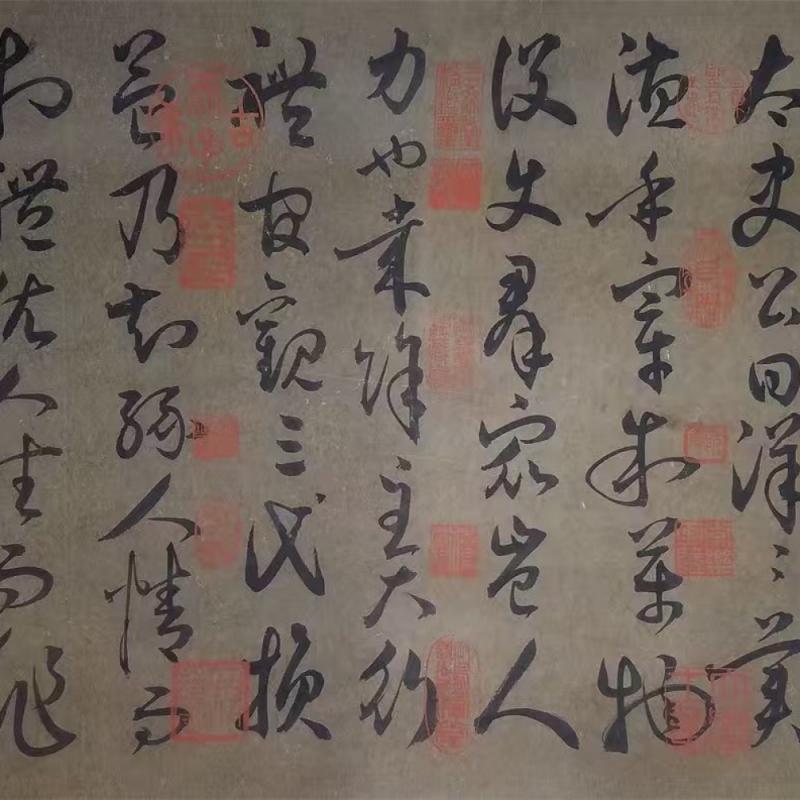 太史公曰洋〻美
德乎宰制萬物
役使群眾豈人
力也哉余至大行
禮官觀三代損
益乃知緣人情而
制禮依人性而作